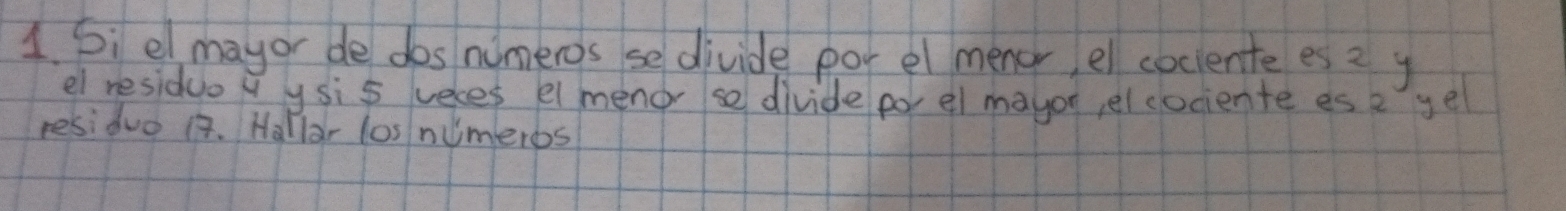 1. Si el mayor de dos números se divide por el menor, el cociente es 2 y
el residuo 4 y si 5 veces el menor se divide por el mayor, el cociente es 2 y el
residuo 17. Hallar los números